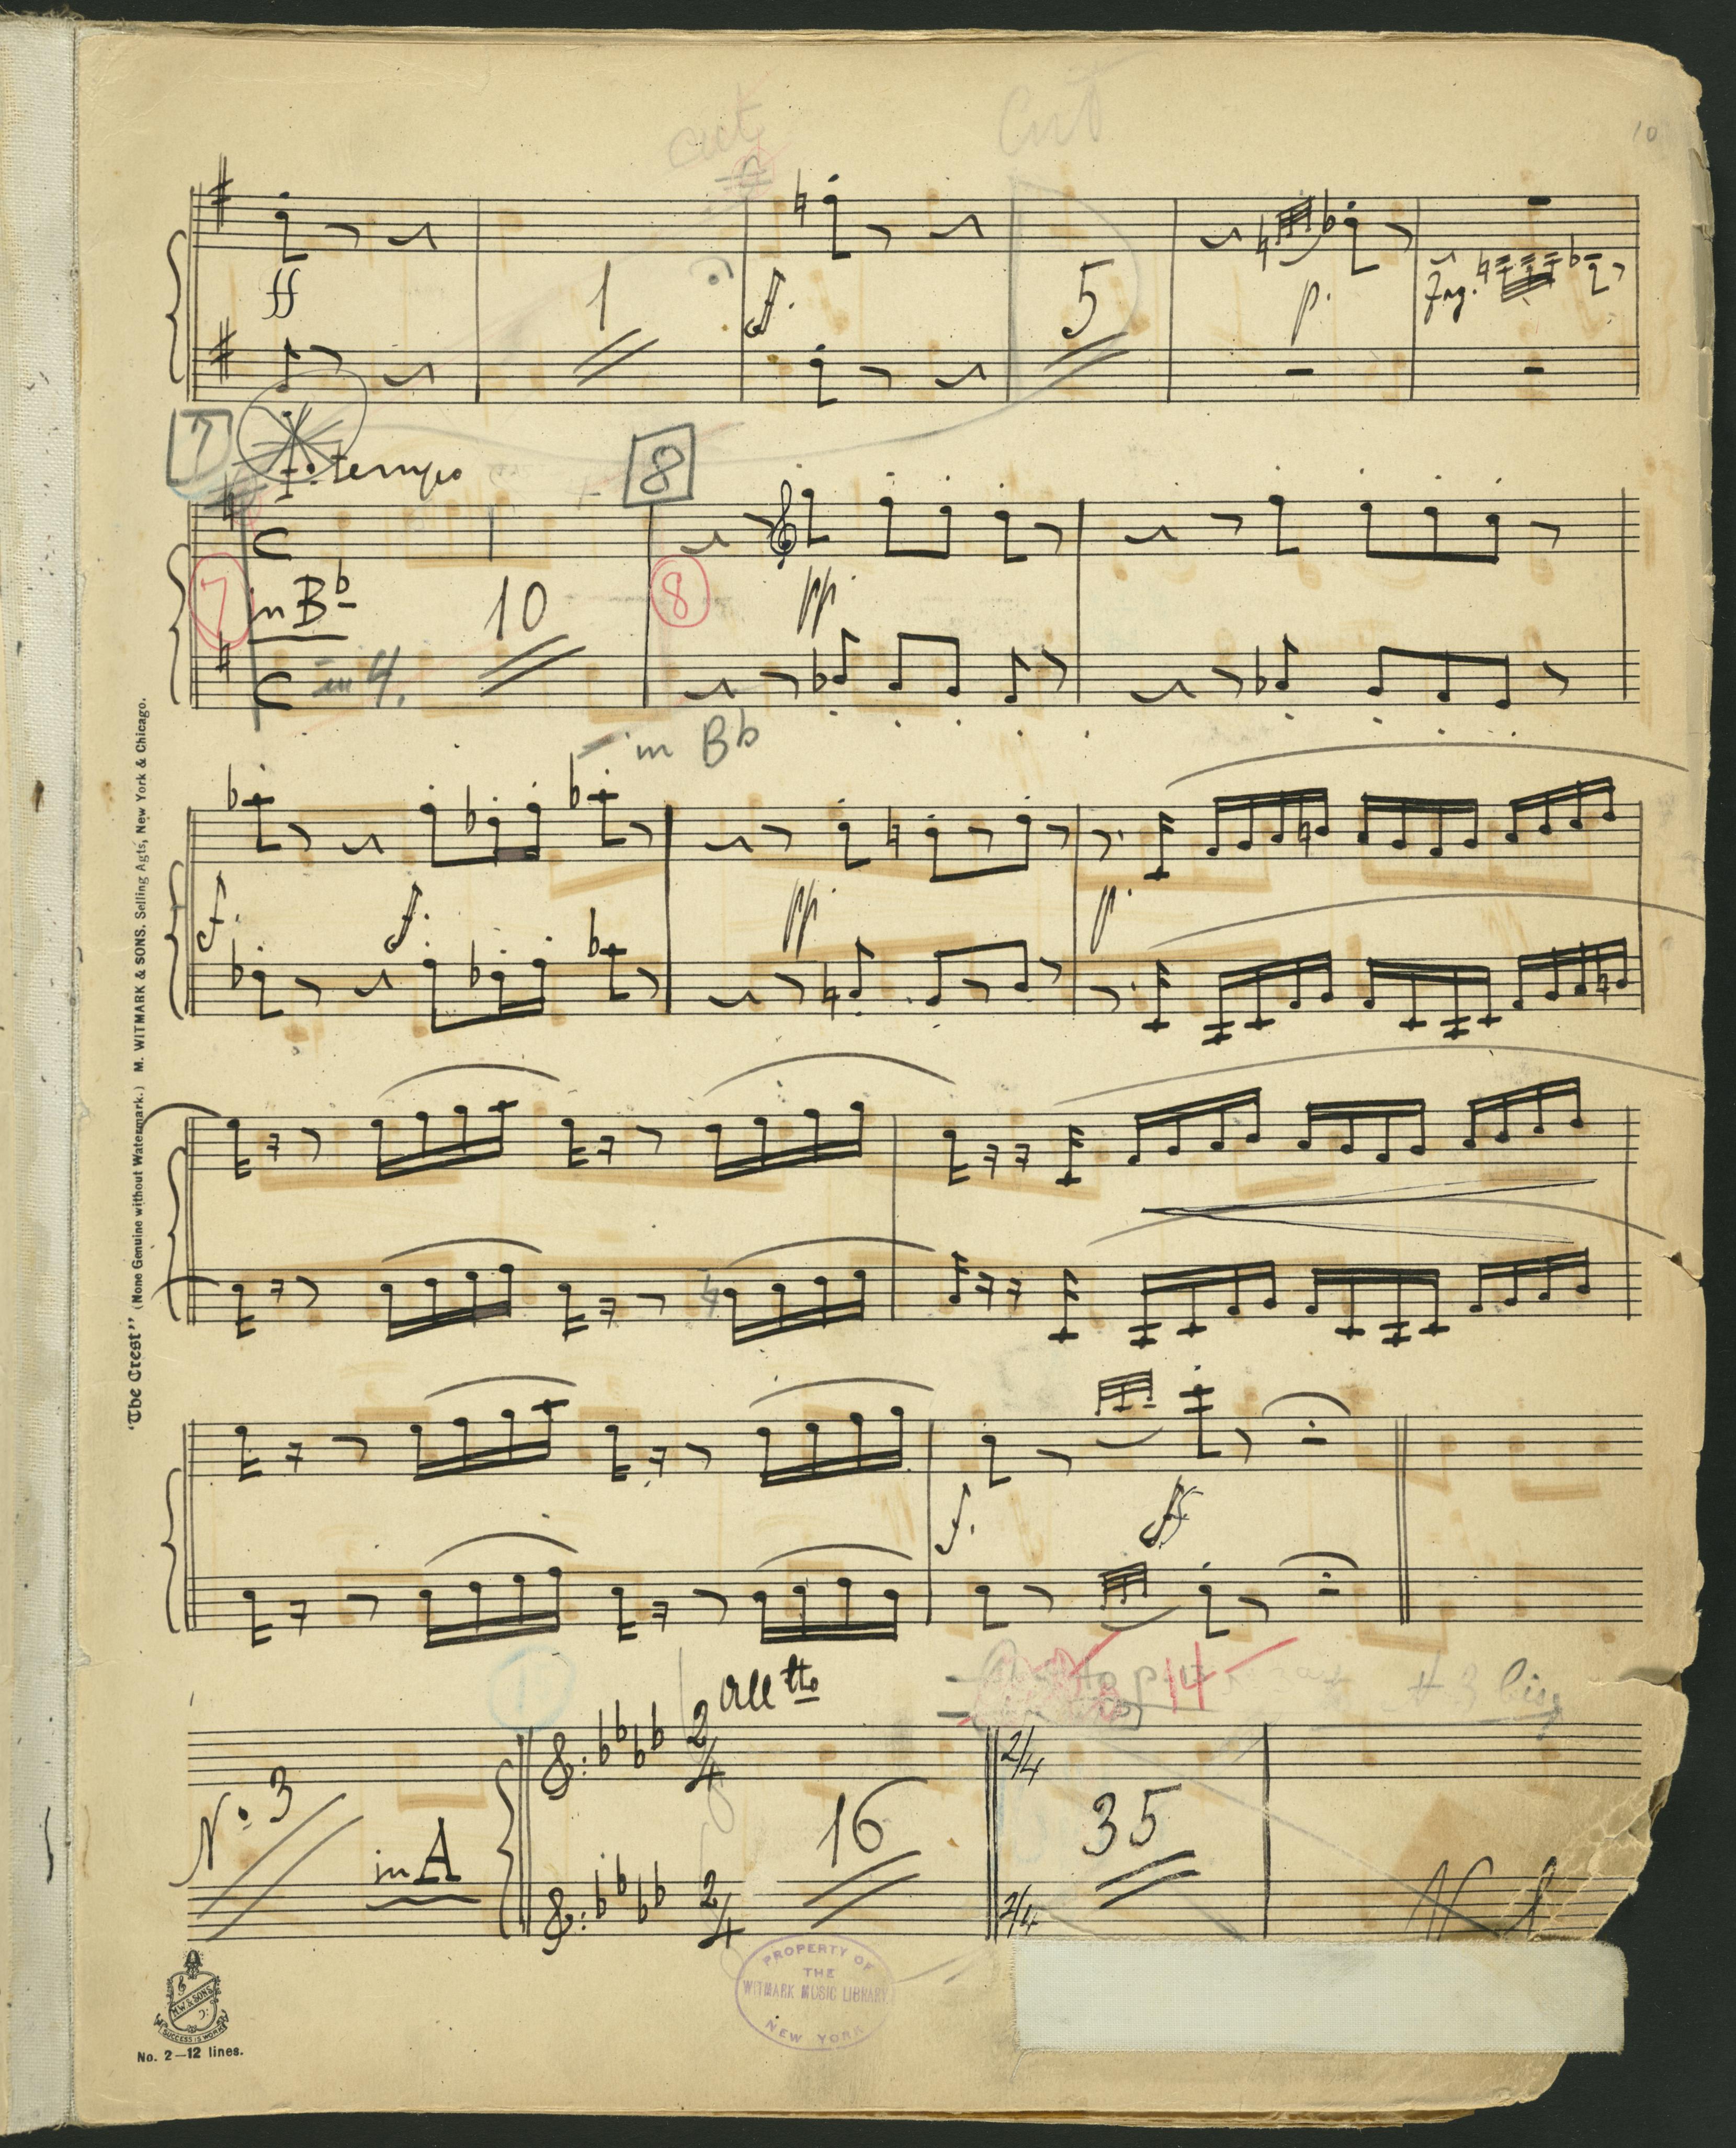 cut
Cut
10
ff
1
f.
5
p.
Fag.
7
I. tempo
8
7
in B♭
10
8
pp.
in 4.
in B♭
f.
f.
pp.
p.
f.
ff
All tto
14
+ 3 bis
2/4
2/4
No. 3
in A
16
35
2/4
2/4
"The Crest" (None Genuine without Watermark.) M. WITMARK & SONS. Selling Agts, New York & Chicago.
PROPERTY OF
THE
WITMARK MUSIC LIBRARY
NEW YORK
M.W. & SONS
SUCCESS IS WORK
No. 2—12 lines.